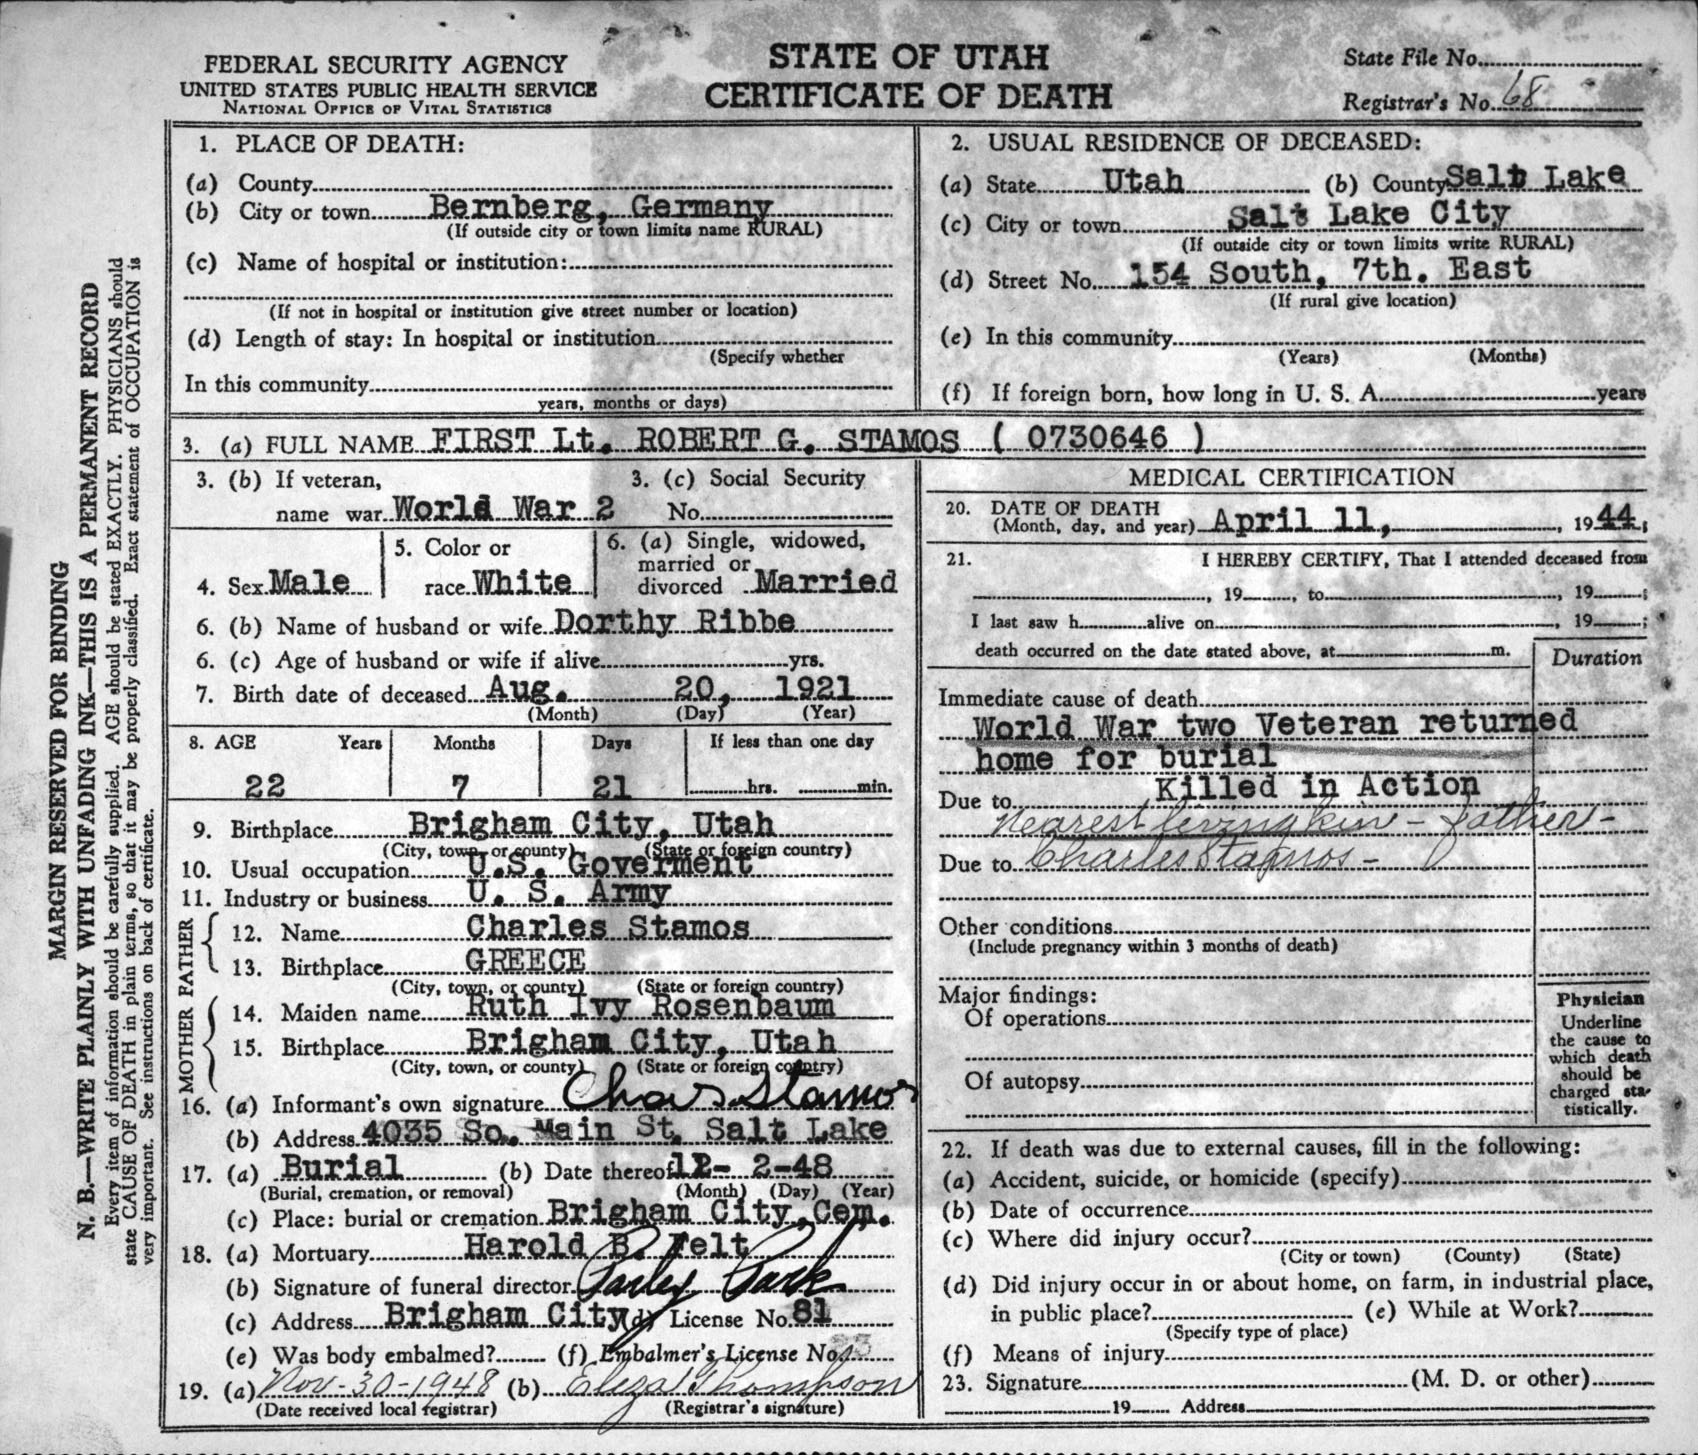 FEDERAL SECURITY AGENCY
UNITED STATES PUBLIC HEALTH SERVICE
NATIONAL OFFICE OF VITAL STATISTICS
STATE OF UTAH
CERTIFICATE OF DEATH
State File No.
Registrar's No. 68
MARGIN RESERVED FOR BINDING
N. B.—WRITE PLAINLY WITH UNFADING INK—THIS IS A PERMANENT RECORD
Every item of information should be carefully supplied. AGE should be stated EXACTLY. PHYSICIANS should
state CAUSE OF DEATH in plain terms, so that it may be properly classified. Exact statement of OCCUPATION is
very important. See instructions on back of certificate.
1. PLACE OF DEATH:
(a) County
(b) City or town Bernberg, Germany
(If outside city or town limits name RURAL)
(c) Name of hospital or institution:
(If not in hospital or institution give street number or location)
(d) Length of stay: In hospital or institution
(Specify whether
In this community
years, months or days)
2. USUAL RESIDENCE OF DECEASED:
(a) State Utah (b) County Salt Lake
(c) City or town Salt Lake City
(If outside city or town limits write RURAL)
(d) Street No. 154 South, 7th. East
(If rural give location)
(e) In this community
(Years) (Months)
(f) If foreign born, how long in U. S. A. years
3. (a) FULL NAME FIRST Lt. ROBERT G. STAMOS ( 0730646 )
3. (b) If veteran,
name war World War 2
3. (c) Social Security
No.
4. Sex Male
5. Color or
race White
6. (a) Single, widowed,
married or
divorced Married
6. (b) Name of husband or wife Dorthy Ribbe
6. (c) Age of husband or wife if alive yrs.
7. Birth date of deceased Aug. 20, 1921
(Month) (Day) (Year)
8. AGE Years Months Days If less than one day
22 7 21 hrs. min.
9. Birthplace Brigham City, Utah
(City, town, or county) (State or foreign country)
10. Usual occupation U.S. Goverment
11. Industry or business U. S. Army
FATHER
12. Name Charles Stamos
13. Birthplace GREECE
(City, town, or county) (State or foreign country)
MOTHER
14. Maiden name Ruth Ivy Rosenbaum
15. Birthplace Brigham City, Utah
(City, town, or county) (State or foreign country)
16. (a) Informant's own signature Chas Stamos
(b) Address 4035 So. Main St. Salt Lake
17. (a) Burial (b) Date thereof 12- 2-48
(Burial, cremation, or removal) (Month) (Day) (Year)
(c) Place: burial or cremation Brigham City, Cem.
18. (a) Mortuary Harold B. Felt
(b) Signature of funeral director Parley Park
(c) Address Brigham City (d) License No. 81
(e) Was body embalmed? (f) Embalmer's License No.
19. (a) Nov-30-1948 (b) Eliza Thompson
(Date received local registrar) (Registrar's signature)
MEDICAL CERTIFICATION
20. DATE OF DEATH
(Month, day, and year) April 11, 1944;
21. I HEREBY CERTIFY, That I attended deceased from
, 19 , to , 19 ;
I last saw h alive on , 19 ;
death occurred on the date stated above, at m.
Duration
Immediate cause of death
World War two Veteran returned
home for burial
Due to Killed in Action
Nearest living kin - father -
Due to Charles Stamos -
Other conditions
(Include pregnancy within 3 months of death)
Major findings:
Of operations
Of autopsy
Physician
Underline
the cause to
which death
should be
charged sta-
tistically.
22. If death was due to external causes, fill in the following:
(a) Accident, suicide, or homicide (specify)
(b) Date of occurrence
(c) Where did injury occur?
(City or town) (County) (State)
(d) Did injury occur in or about home, on farm, in industrial place,
in public place? (e) While at Work?
(Specify type of place)
(f) Means of injury
23. Signature (M. D. or other)
19 Address